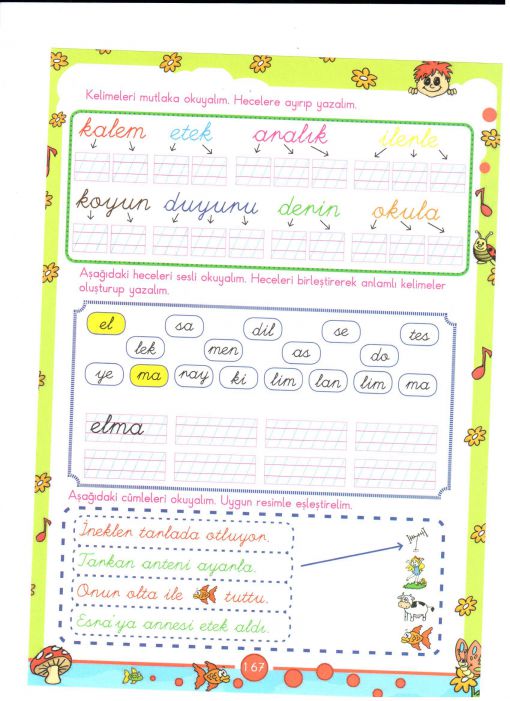 Kelimeleri mutlaka okuyalım. Hecelere ayırıp yazalım.
kalem etek aralık ilerle
koyun duyuru derin okula
Aşağıdaki heceleri sesli okuyalım. Heceleri birleştirerek anlamlı kelimeler
oluşturup yazalım.
el sa dil se tes
lek men as do
ye ma ray ki lim lan lim ma
elma
Aşağıdaki cümleleri okuyalım. Uygun resimle eşleştirelim.
İnekler tarlada otluyor.
Tarkan anteni ayarla.
Onur olta ile tuttu.
Esra'ya annesi etek aldı.
167